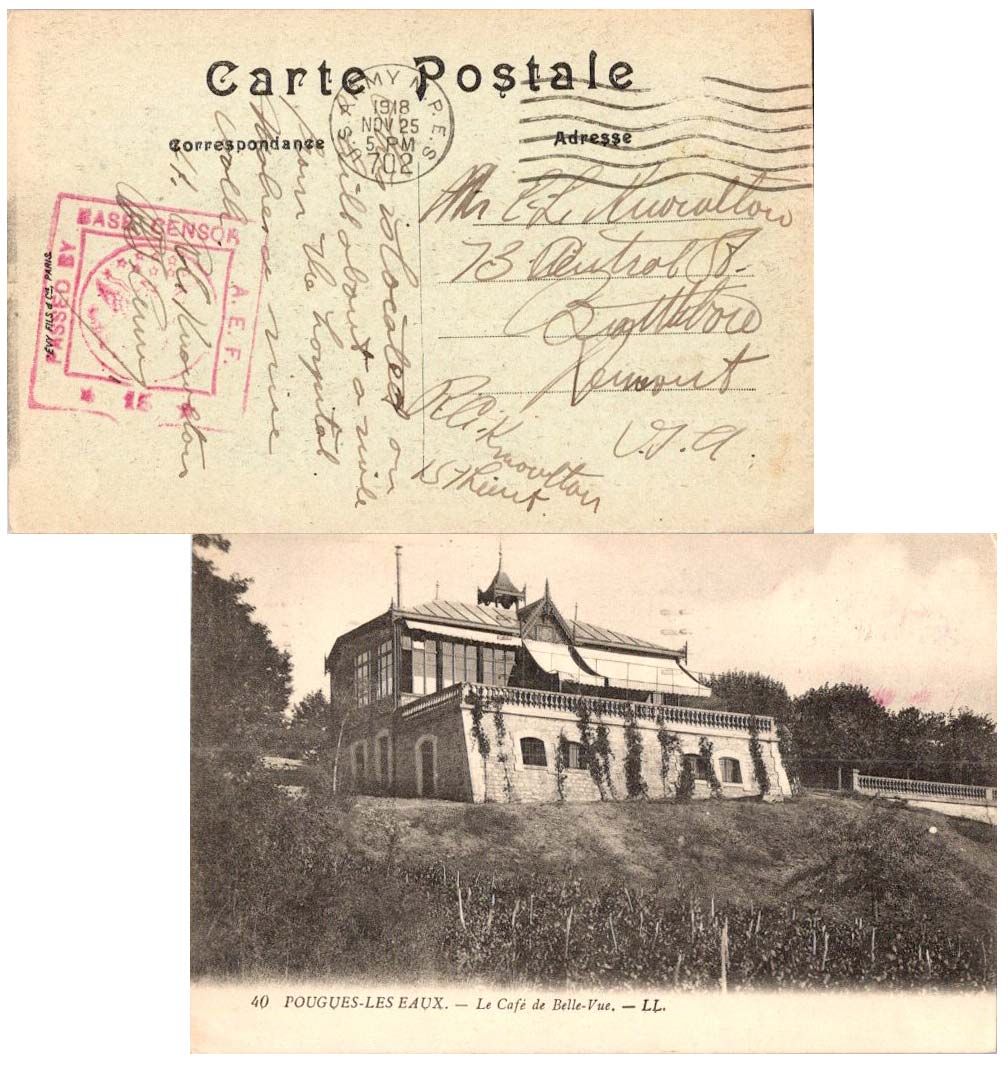 Carte Postale
Correspondance
Adresse
U.S. ARMY M.P.E.S.
1918
NOV 25
5 PM
702
PASSED BY
BASE CENSOR
A. E. F.
LEVY FILS & Cie, PARIS
located on
hill about a mile
from the hospital
where nine
Mr C. L.
73 Central St.
Brattleboro
Vermont
U.S.A.
R.A. Knowlton
1st Lieut.
40 POUGUES-LES EAUX. — Le Café de Belle-Vue. — LL.